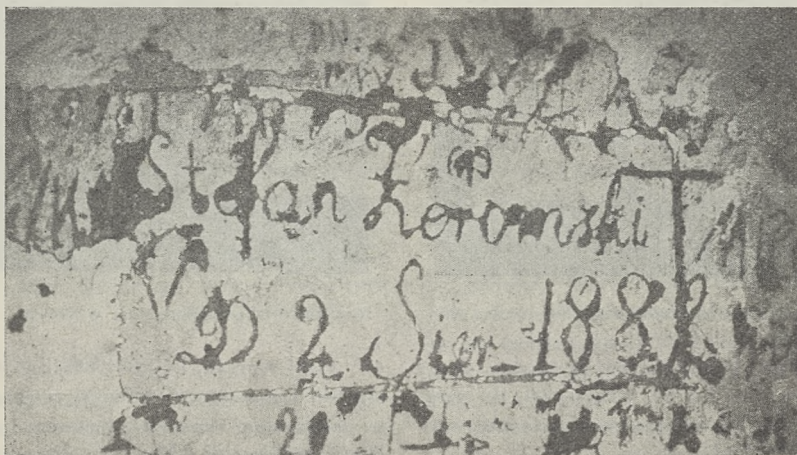 Stefan Żeromski
D 2 Sier. 1882